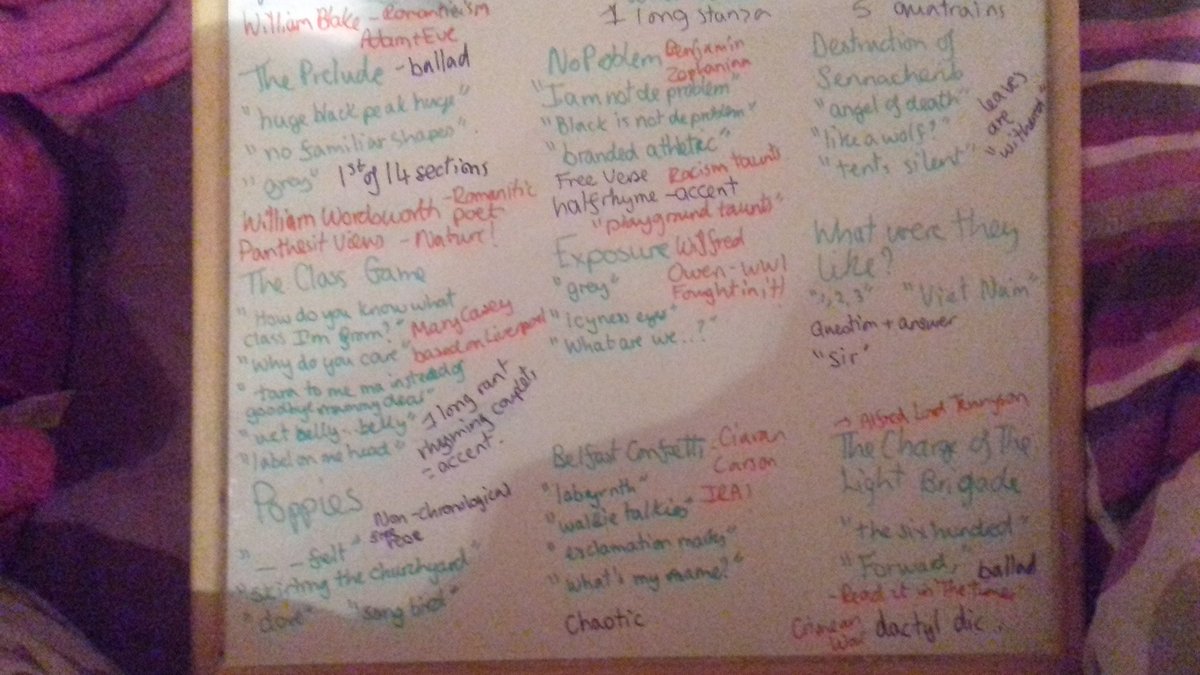 William Blake - Romanticism
Adam + Eve
The Prelude - ballad
"huge black peak huge"
"no familiar shapes"
"grey" 1st of 14 sections
William Wordsworth - Romanitic poet
Panthesit Views - Nature!
The Class Game
"How do you know what
class I'm from?" Mary Casey
"Why do you care" based on Liverpool
"-tara to me ma instead of
goodbye mummy dear"
"wet belly.. belly" 1 long rant
"label on me head" rhyming couplets
- accent.
Poppies
Non-chronological
"_ _ felt"
"skirting the churchyard"
"dove" "song bird"
1 long stanza
No Problem Benjamin
Zephaniah
"I am not de problem"
"Black is not de problem"
"branded athletic"
Free Verse Racism taunts
half rhyme - accent
"playground taunts"
Exposure Wilfred
Owen - WW1
"grey" Fought in it!
"icyness eyes"
"What are we..?"
Belfast Confetti Ciaran
Carson
"labyrinth" IRA!
"walkie talkies"
"exclamation marks"
"what's my name?"
Chaotic
5 quatrains
Destruction of
Sennacherib
"angel of death"
"like a wolf"
"tents silent" "leaves
are
withered"
What were they
like?
"1,2,3" "Viet Nam"
Question + answer
"Sir"
→ Alfred Lord Tennyson
The Charge of The
Light Brigade
"the six hundred"
"Forward," ballad
- Read it in The Times
Crimean
War dactyl dic.